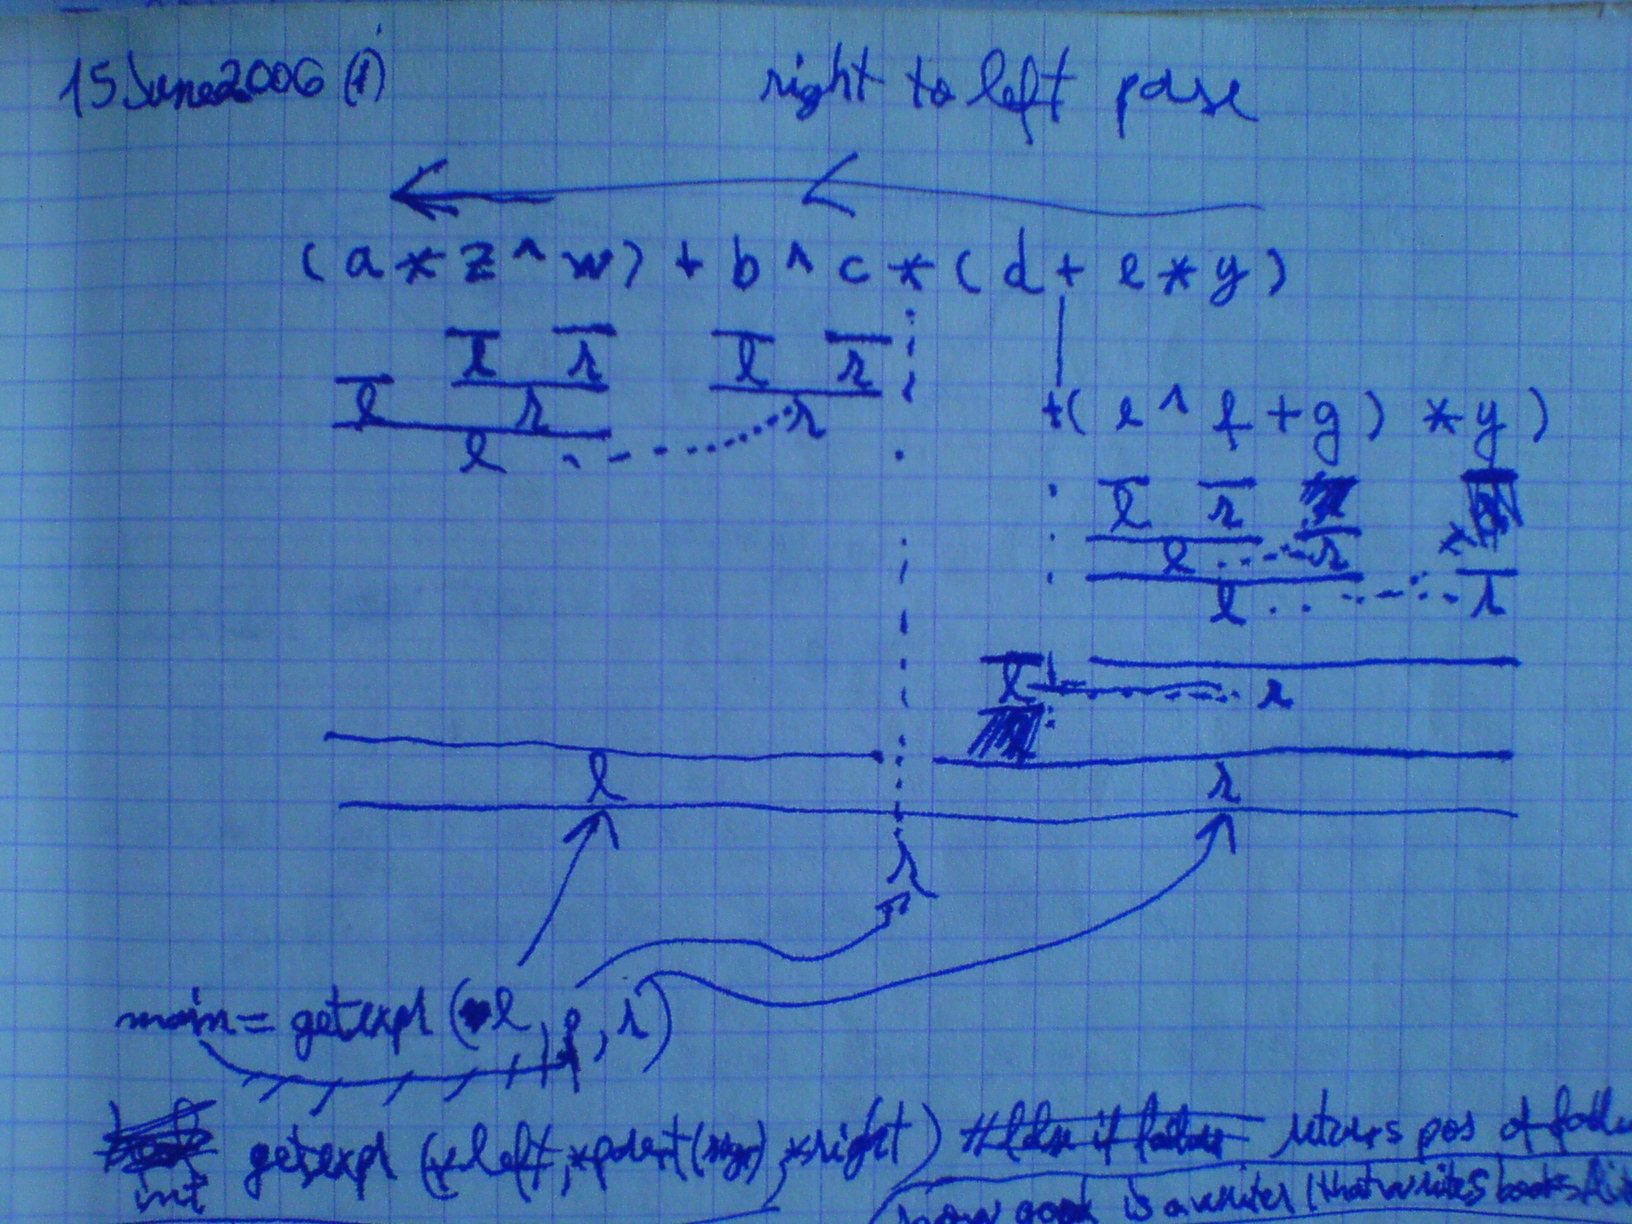 15 June 2006 (1)
right to left parse
(a * z ^ w) + b ^ c * (d + e * y)
l r l r
l r r
l
+( e ^ f + g ) * y )
l r
l r
l r
l r
l r
r
main = getexpr (l, p, r)
int getexpr (*left, *parent *right) returns pos of
good is a writer (that writes books